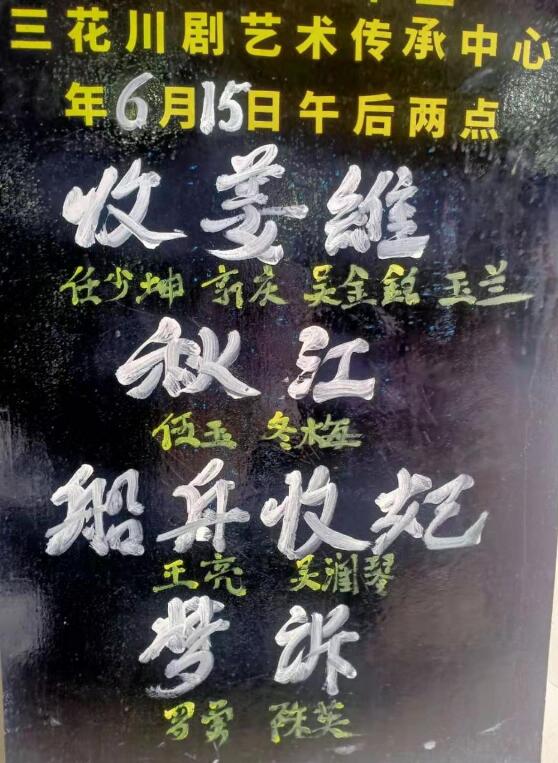 三花川剧艺术传承中心
年6月15日午后两点
收姜維
任少坤 郭庆 吴金銘 玉兰
秋江
伍玉 冬梅
船舟收妃
王亮 吴潤琴
梦訴
罗莺 陈英